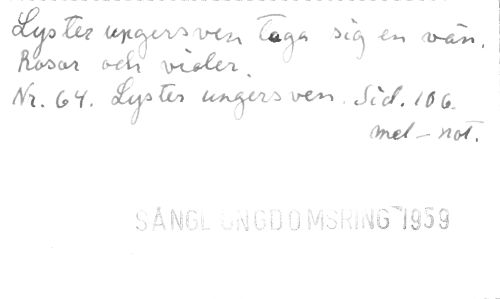 Lyster ungersven taga sig en vän.
Rosor och violer.
Nr. 64. Lyster ungersven. Sid. 106.
mel-not.
SÅNGL UNGDOMSRING 1959